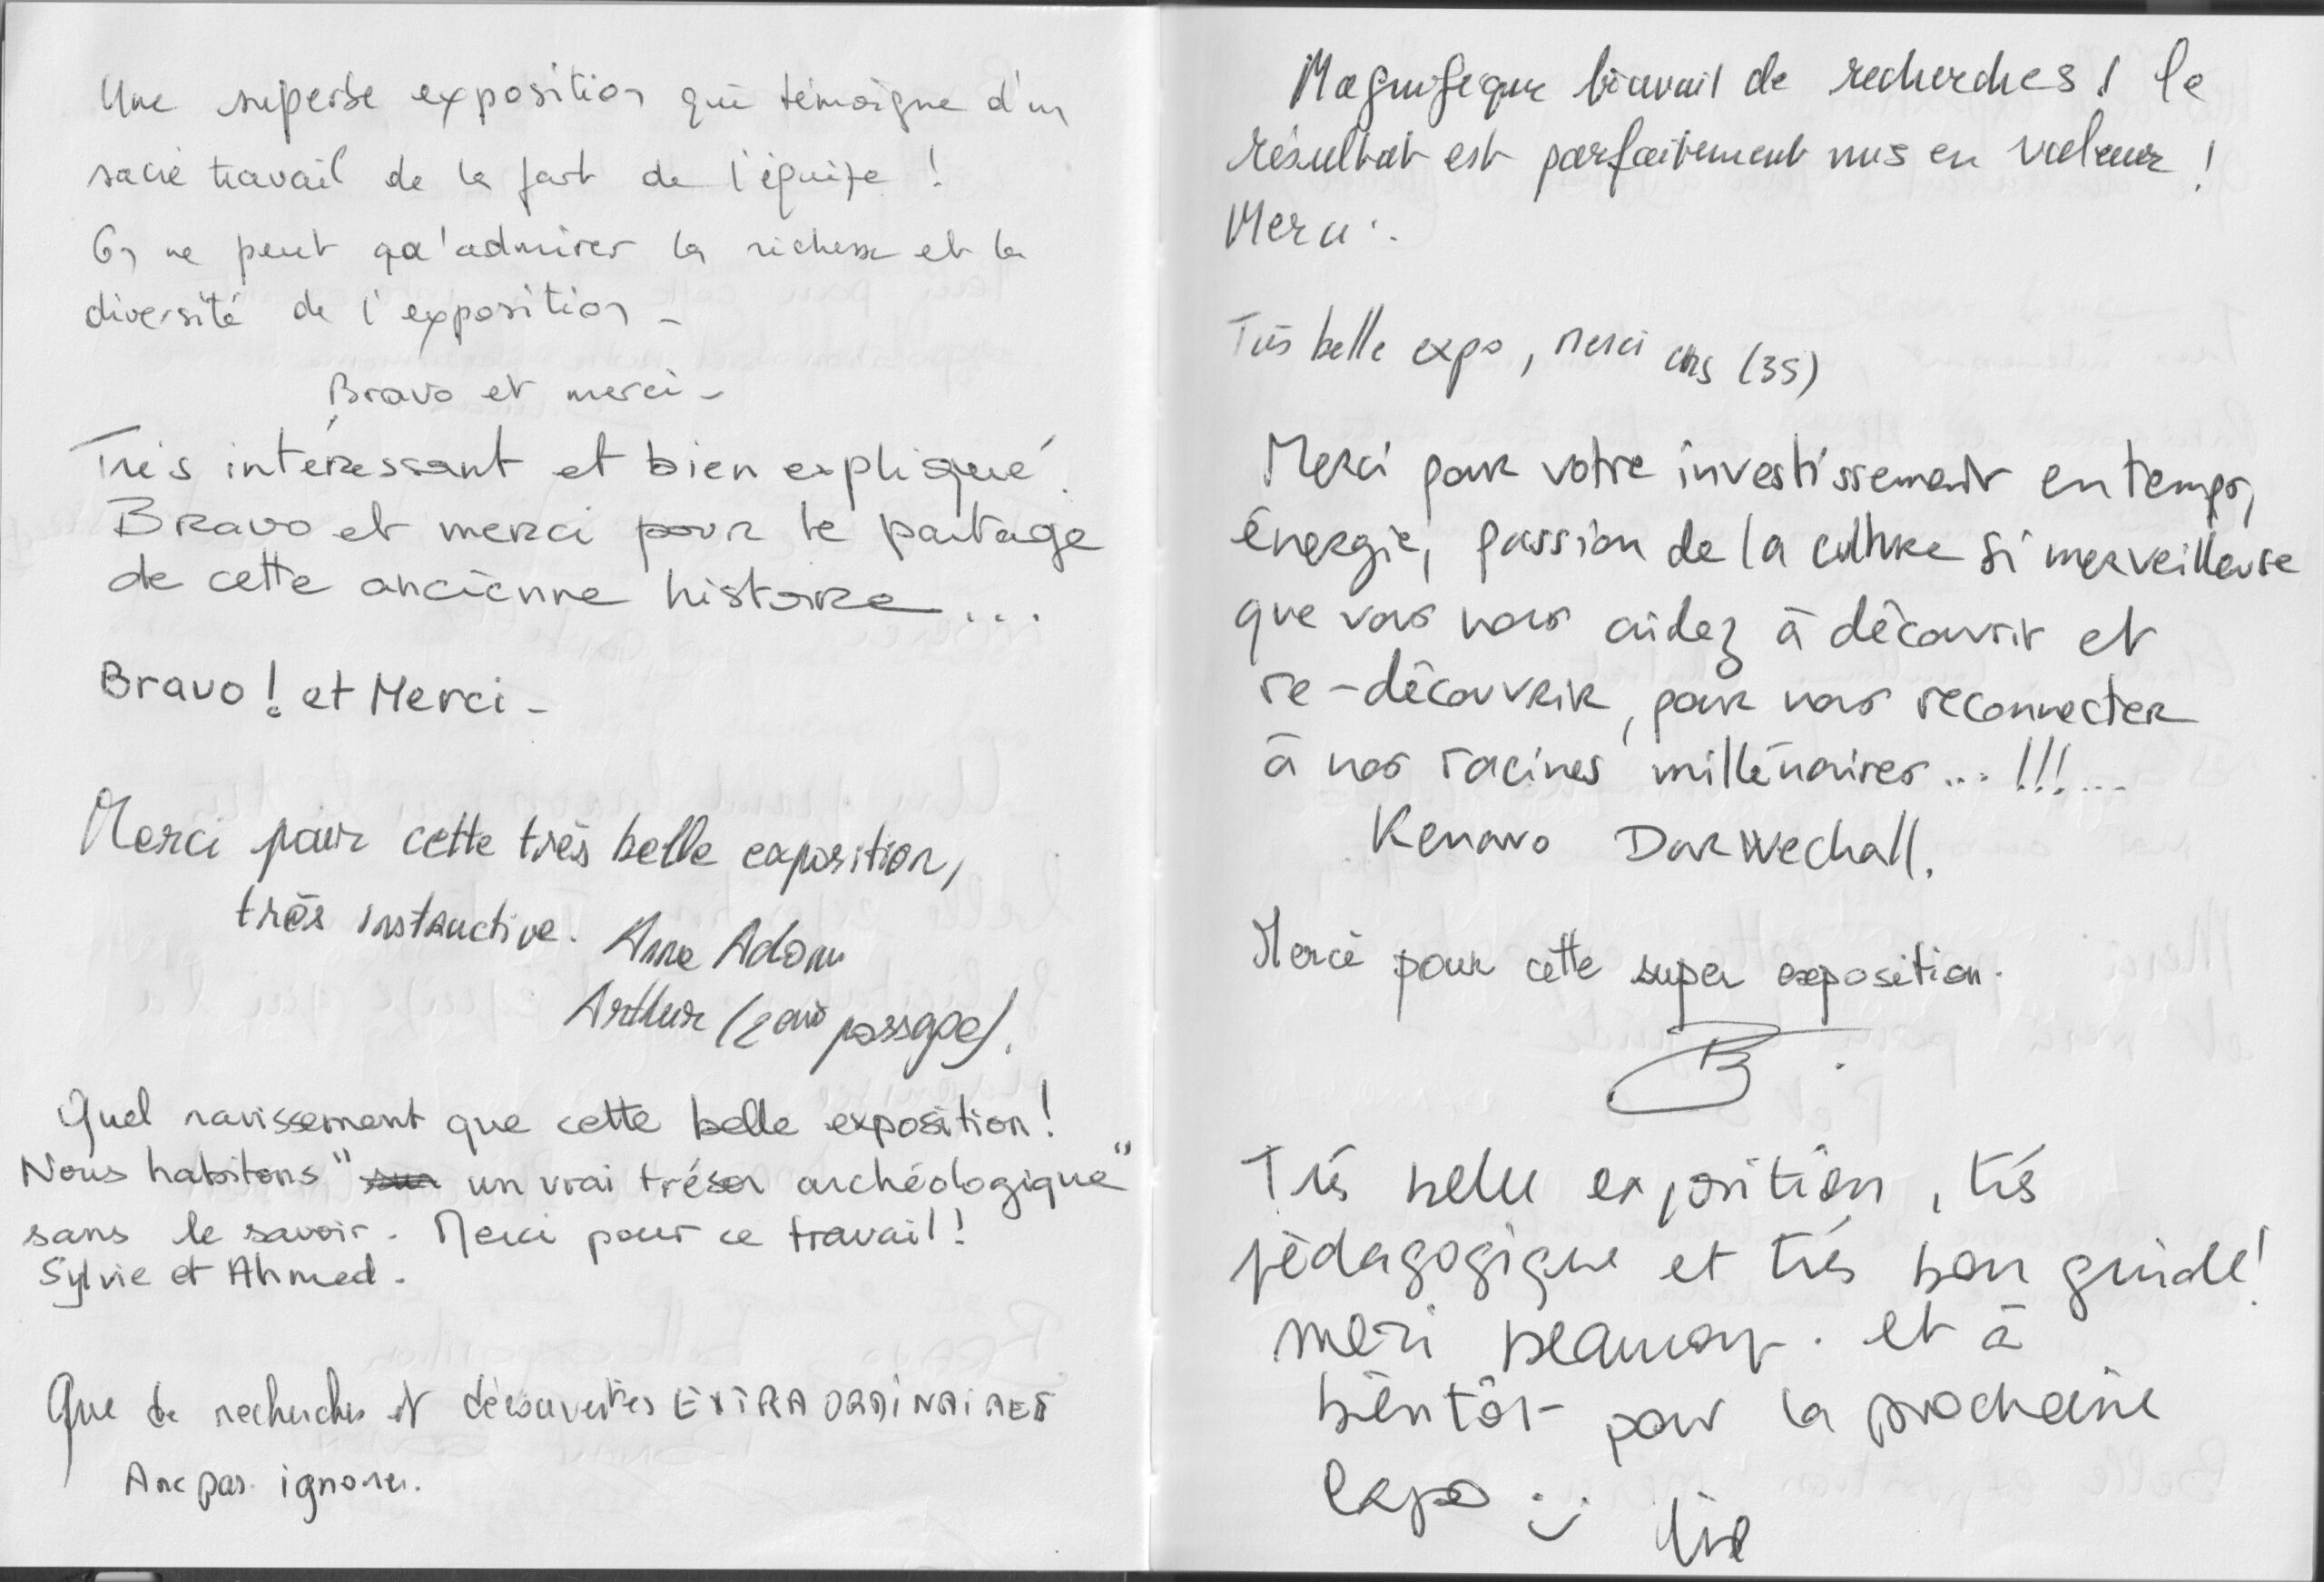 Une superbe exposition qui témoigne d'un
sacré travail de la part de l'équipe !
On ne peut qu'admirer la richesse et la
diversité de l'exposition -
Bravo et merci -
Très intéressant et bien expliqué.
Bravo et merci pour le partage
de cette ancienne histoire ...
Bravo ! et Merci -
Merci pour cette très belle exposition,
très instructive. Anne Adam
Arthur (2ème passage).
Quel ravissement que cette belle exposition !
Nous habitons " un vrai trésor archéologique "
sans le savoir. Merci pour ce travail !
Sylvie et Ahmed.
Que de recherches et découvertes EXTRAORDINAIRES
A ne pas ignorer.
Magnifique travail de recherches ! le
résultat est parfaitement mis en valeur !
Merci.
Très belle expo, merci (35)
Merci pour votre investissement en temps,
énergie, passion de la culture si merveilleuse
que vous nous aidez à découvrir et
re-découvrir, pour nous reconnecter
à nos racines millénaires ... !!! ...
Kenavo Dar Wechall.
Merci pour cette super exposition.
B
Très belle exposition, très
pédagogique et très bon guide !
merci beaucoup. et à
bientôt pour la prochaine
expo :)